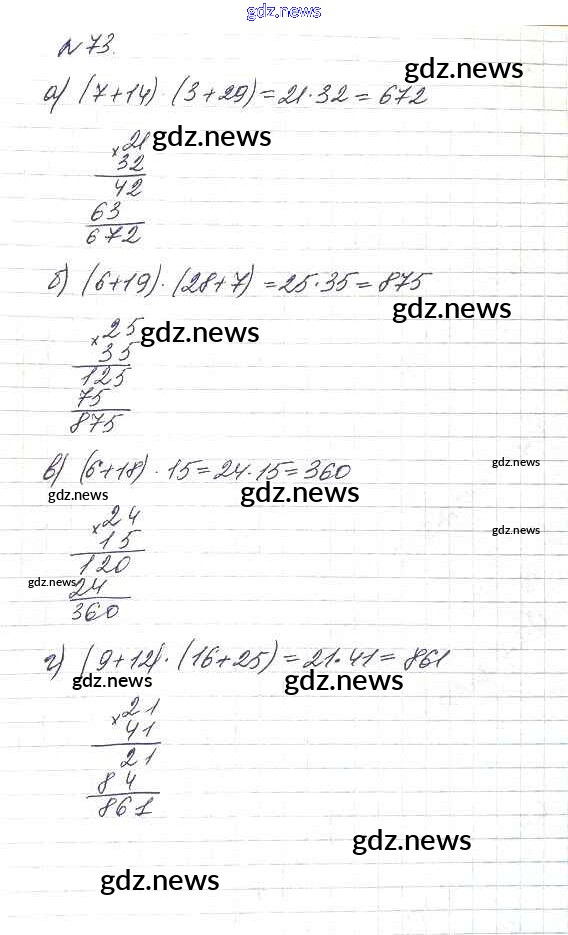 gdz.news
№ 73.
gdz.news
а) (7+14) · (3+29) = 21·32 = 672
× 21 gdz.news
32
42
63
672
б) (6+19) · (28+7) = 25·35 = 875
gdz.news
× 25 gdz.news
35
125
75
875
в) (6+18) · 15 = 24·15 = 360
gdz.news
gdz.news gdz.news
× 24
15 gdz.news
120
gdz.news 24
360
г) (9+12) · (16+25) = 21·41 = 861
gdz.news gdz.news
× 21
41
21
84
861
gdz.news
gdz.news